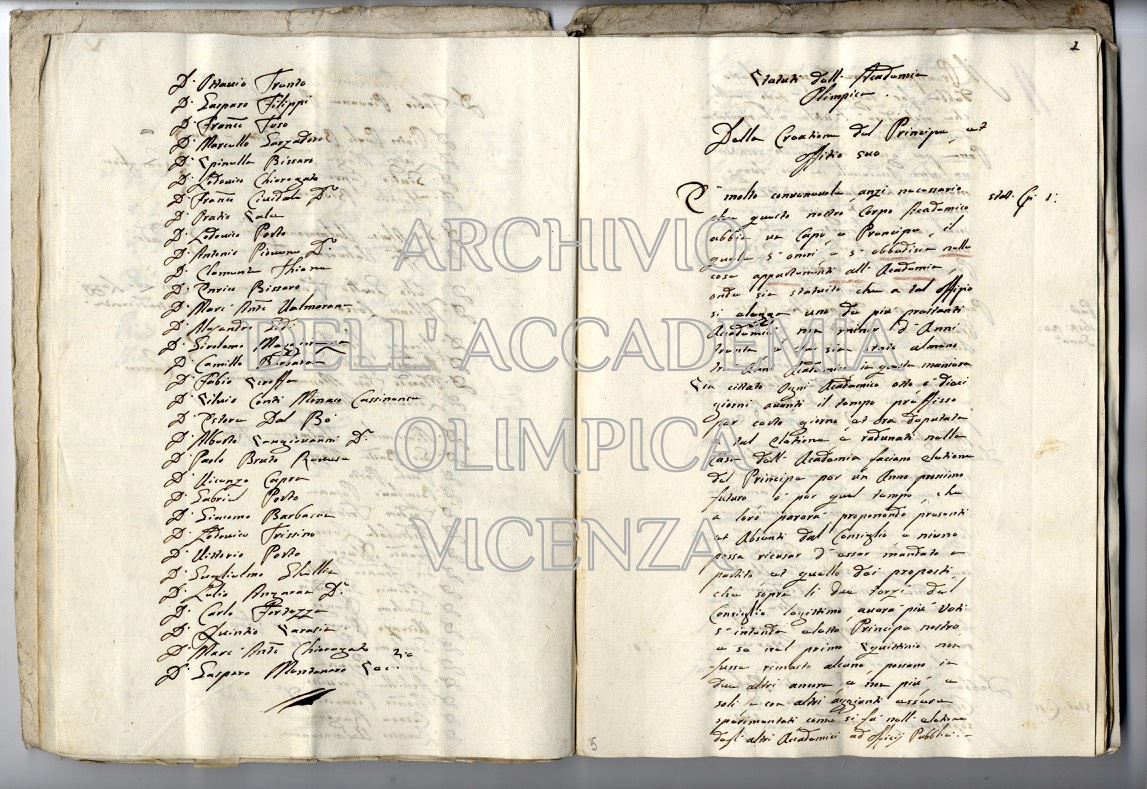 D.r Ottavio Trento
D. Gasparo Filippi
D. Franc.o Tuso
D. Marcello Garzadori
D. Spinella Bissaro
D. Lodovico Chieregato
D. Franc.o Cividale D.r
D. Oratio
D. Lodovico Porto
D. Antonio Piovene D.r
D. Clemente Thiene
D. Enrico Bissaro
D. Marc' Ant.o Valmarana
D. Alessandro
D. Girolamo
D. Camillo Barbaran
D. Fabio Sroffa
D. Silvio Conti Monaco Cassinense
D. Ettore Dal Bò
D. Alberto Sangiovanni D.r
D. Paolo Bruto
D. Vicenzo Capra
D. Gabriel Porto
D. Giacomo Barbaran
D. Lodovico Trissino
D. Vittorio Porto
D. Guglielmo
D. Lelio Anzaran D.r
D. Carlo Fortezza
D. Quintio Sarasin
D. Marc' Ant.o Chieregato
D. Gasparo Montanaro
1
Statuti dell' Academia
Olimpica.
Della Creatione del Principe, et
offitio suo
È molto convenevole anzi necessario
che questo nostro Corpo Academico
abbia un Capo o Principe, il
quale s' onori e s' obbedisca nelle
cose appartenenti all' Academia,
onde sia statuito che a tal offitio
si elegga uno de più prestanti
Academici non minor d' Anni
trenta e che sia stato almeno
tre Anni Academico in questa maniera
Sia cittato ogni Academico otto o dieci
giorni avanti il tempo prefisso
per certo giorno et hora deputata
a tal Elettione e redunati nella
casa dell' Academia faciano elettione
del Principe per un Anno prossimo
futuro o per quel tempo, che
a loro parerà proponendo presenti
et Absenti dal Consiglio e niuno
possa ricusar d' esser mandato a
partito et quello dei proposti,
che sopra li due terzi del
Consiglio legittimo averà più voti
s' intenda eletto Principe nostro
e se nel primo Squittinio non
fusse rimasto alcuno, possono in
due altri ancora e non più o
soli o con altri aggionti essere
sperimentati come si fa nell' elettione
degl' altri Academici ad officij Publici.
stat. Cp.i 1:
5
ARCHIVIO
DELL'ACCADEMIA
OLIMPICA
VICENZA